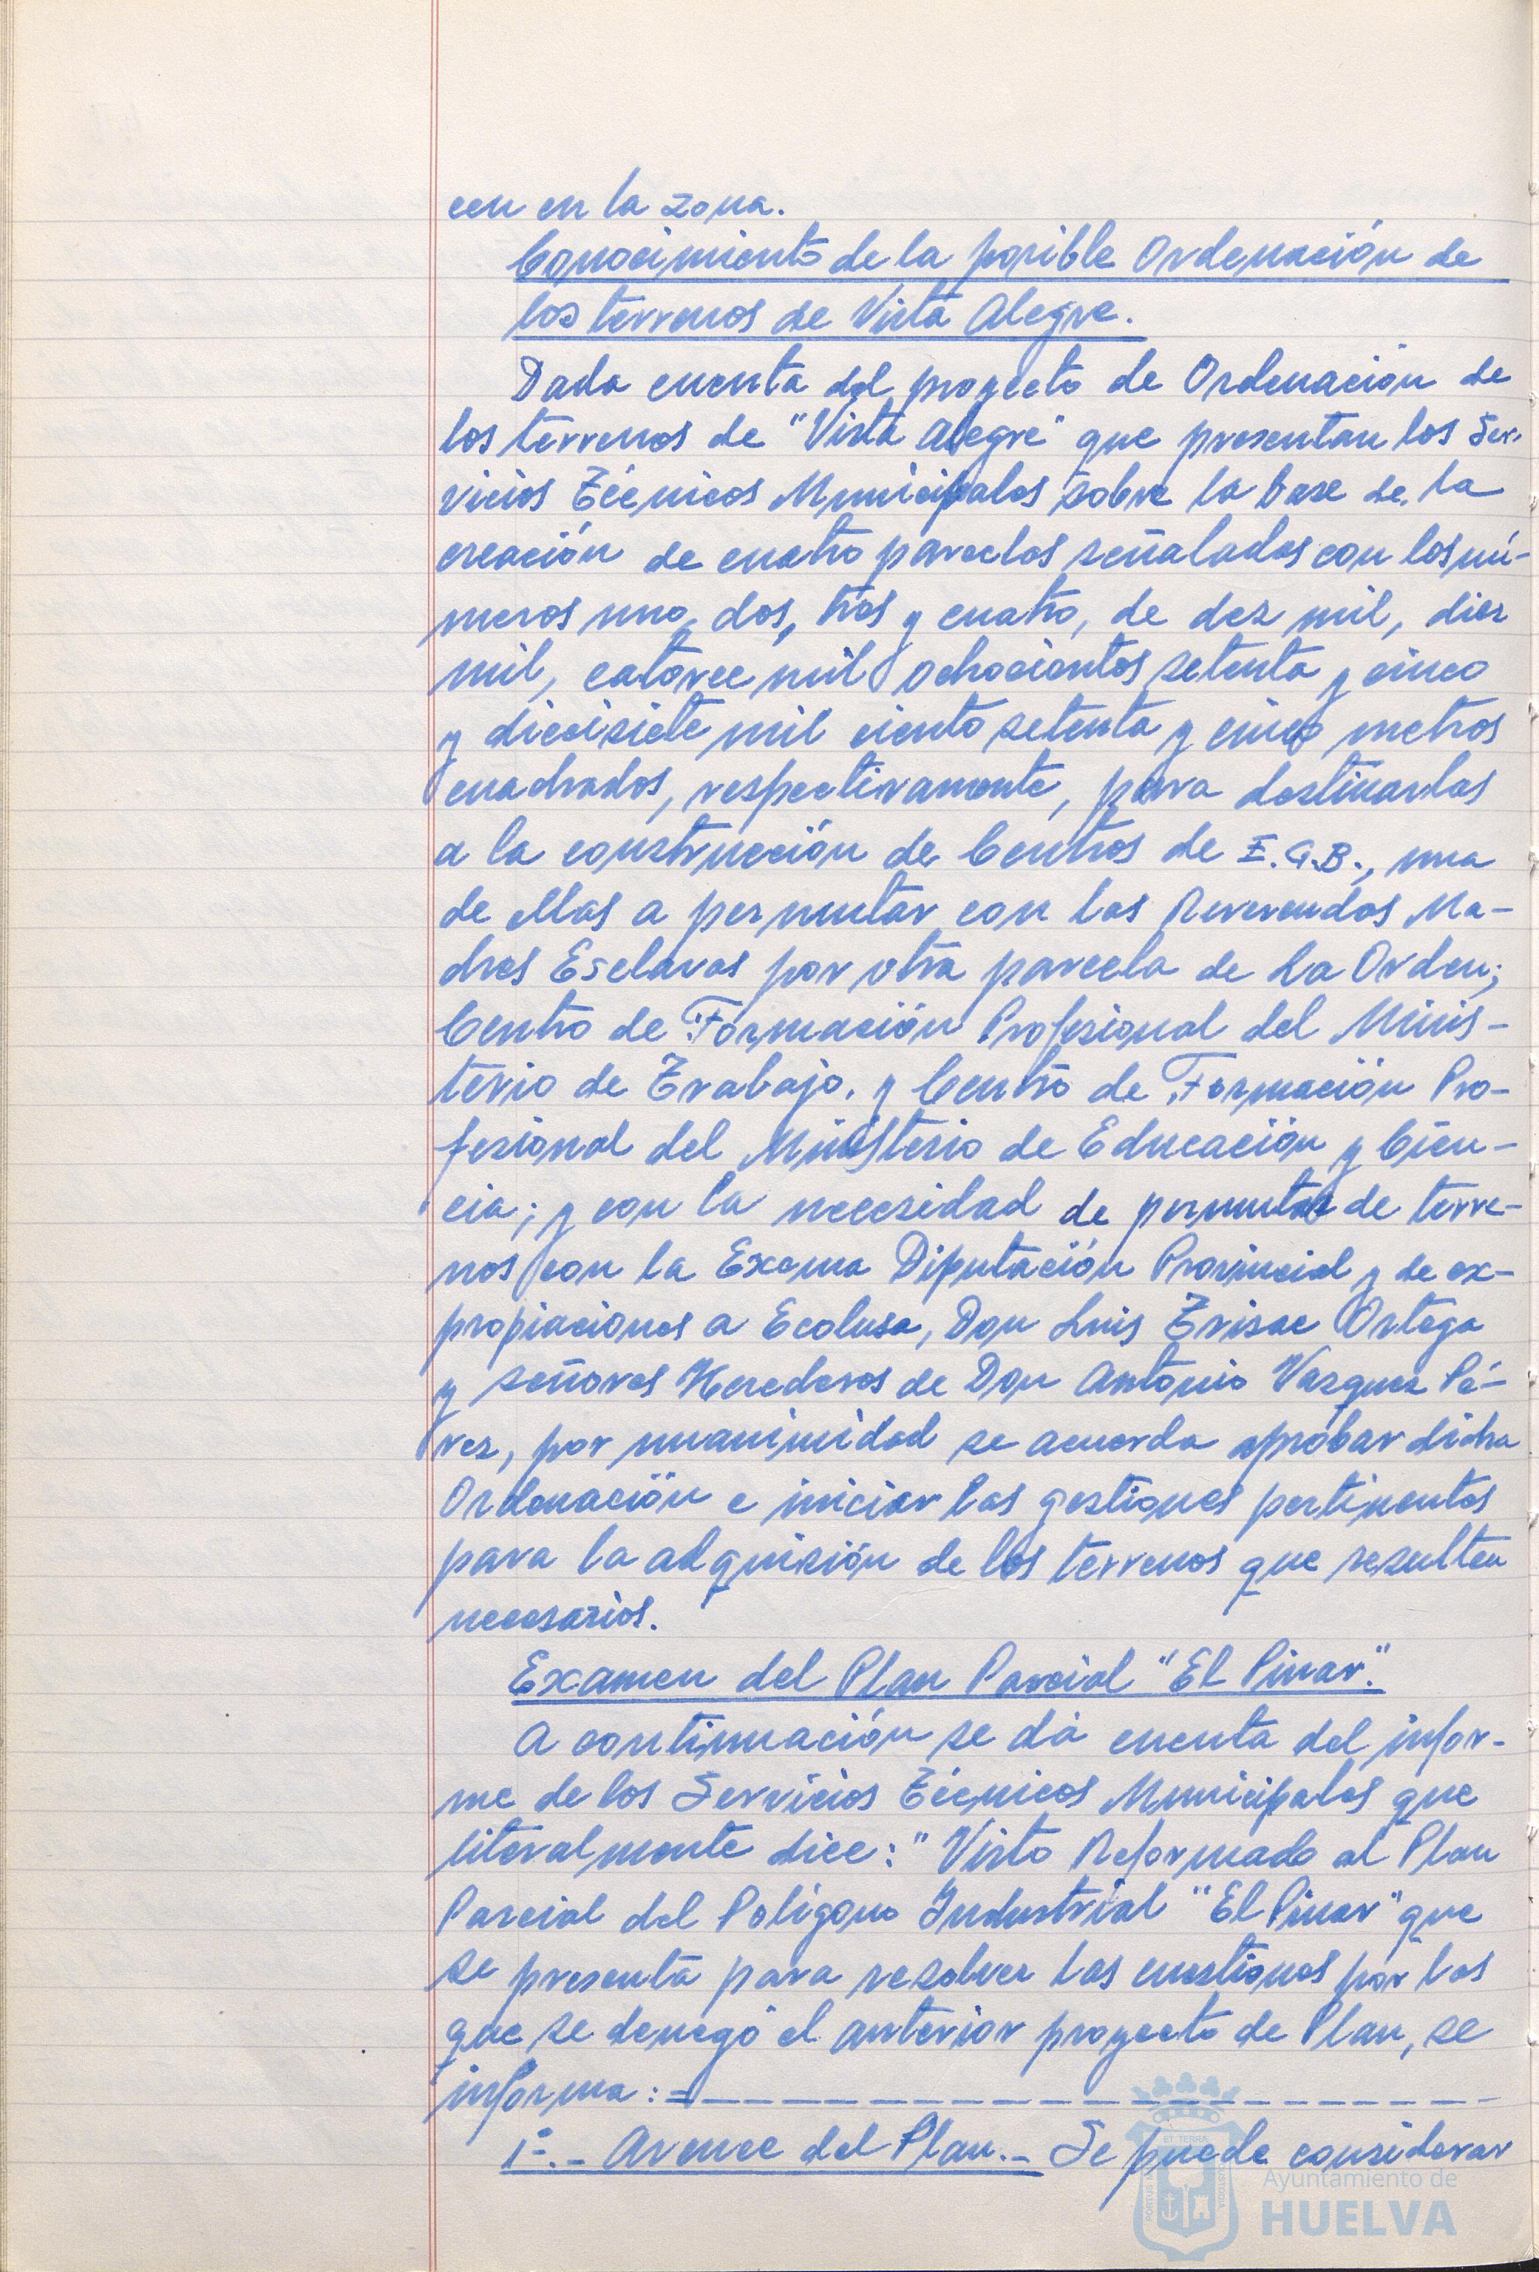 cen en la zona.
Conocimiento de la posible Ordenación de
los terrenos de Vista Alegre.
Dada cuenta del proyecto de Ordenación de
los terrenos de "Vista Alegre" que presentan los Ser-
vicios Técnicos Municipales sobre la base de la
creación de cuatro parcelas señaladas con los nú-
meros uno, dos, tres y cuatro, de diez mil, diez
mil, catorce mil ochocientos setenta y cinco
y diecisiete mil ciento setenta y cinco metros
cuadrados, respectivamente, para destinarlas
a la construcción de Centros de E.G.B., una
de ellas a permutar con las Reverendas Ma-
dres Esclavas por otra parcela de La Orden;
Centro de Formación Profesional del Minis-
terio de Trabajo, y Centro de Formación Pro-
fesional del Ministerio de Educación y Cien-
cia; y con la necesidad de permutas de terre-
nos con la Excma Diputación Provincial y de ex-
propiaciones a Ecolusa, Don Luis Trisac Ortega
y señores Herederos de Don Antonio Vazquez Pé-
rez, por unanimidad se acuerda aprobar dicha
Ordenación e iniciar las gestiones pertinentes
para la adquisión de los terrenos que resulten
necesarios.
Examen del Plan Parcial "El Pinar".
A continuación se dá cuenta del infor-
me de los Servicios Técnicos Municipales que
literalmente dice: "Visto Reformado al Plan
Parcial del Poligono Industrial "El Pinar" que
se presenta para resolver las cuestiones por las
que se denegó el anterior proyecto de Plan, se
informa:=_ _ _ _ _ _ _ _ _ _ _ _ _ _
1º.- Avance del Plan.- Se puede considerar
Ayuntamiento de
HUELVA